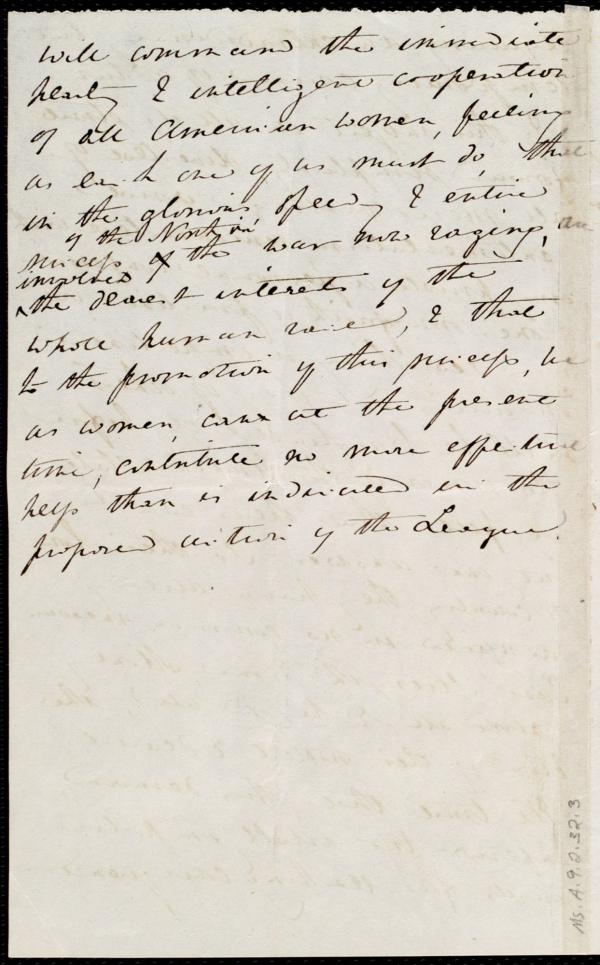 will command the immediate
hearty & intelligent cooperation
of all American women, feeling
as each one of us must do, that
in the glorious, speedy & entire
of the North in
success of the war now raging, are
involved
the dearest interests of the
whole human race, & that
to the promotion of this success, we
as women, can at the present
time, contribute no more effective
help than is indicated in the
proposed action of the League.
Ms. A. 9. 2. 32. 3